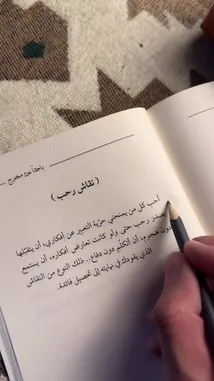 باحثاً عن مخرج
( نقاش رحب )
أحب كل من يمنحني حرّية التعبير عن أفكاري، أن يتقبّلها
بصدر رحب حتى ولو كانت تعارض أفكاره، أن يستمع
دون هجوم، أن أتكلّم دون دفاع.. ذلك النوع من النقاش
الذي يقودك في نهايته إلى تحصيل فائدة.